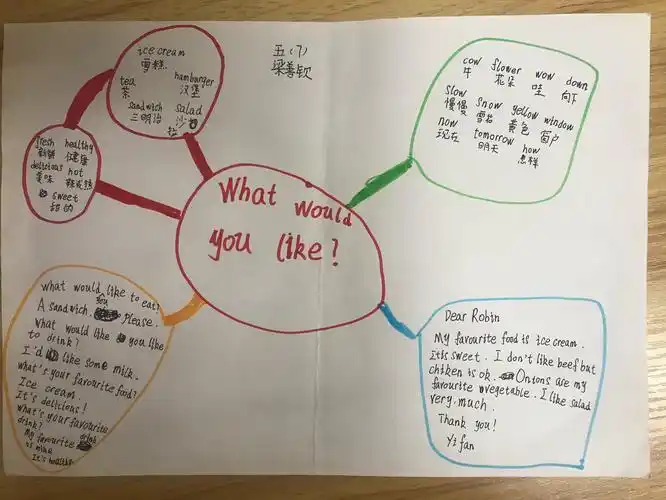 五(7)
梁善钦
What would
you like?
ice cream
雪糕
tea hamburger
茶 汉堡
sandwich salad
三明治 沙拉
fresh healthy
新鲜 健康
delicious hot
美味 辣或热
sweet
甜的
cow flower wow down
牛 花朵 哇 向下
slow snow yellow window
慢慢 雪花 黄色 窗户
now tomorrow how
现在 明天 怎样
what would you like to eat?
A sandwich. Please.
what would like you like
to drink?
I'd like some milk.
what's your favourite food?
Ice cream.
It's delicious!
what's your favourite
drink?
My favourite drink
is
It's
Dear Robin
My favourite food is ice cream.
It is sweet. I don't like beef but
chiken is ok. Onions are my
favourite vegetable. I like salad
very. much.
Thank you!
Yi fan